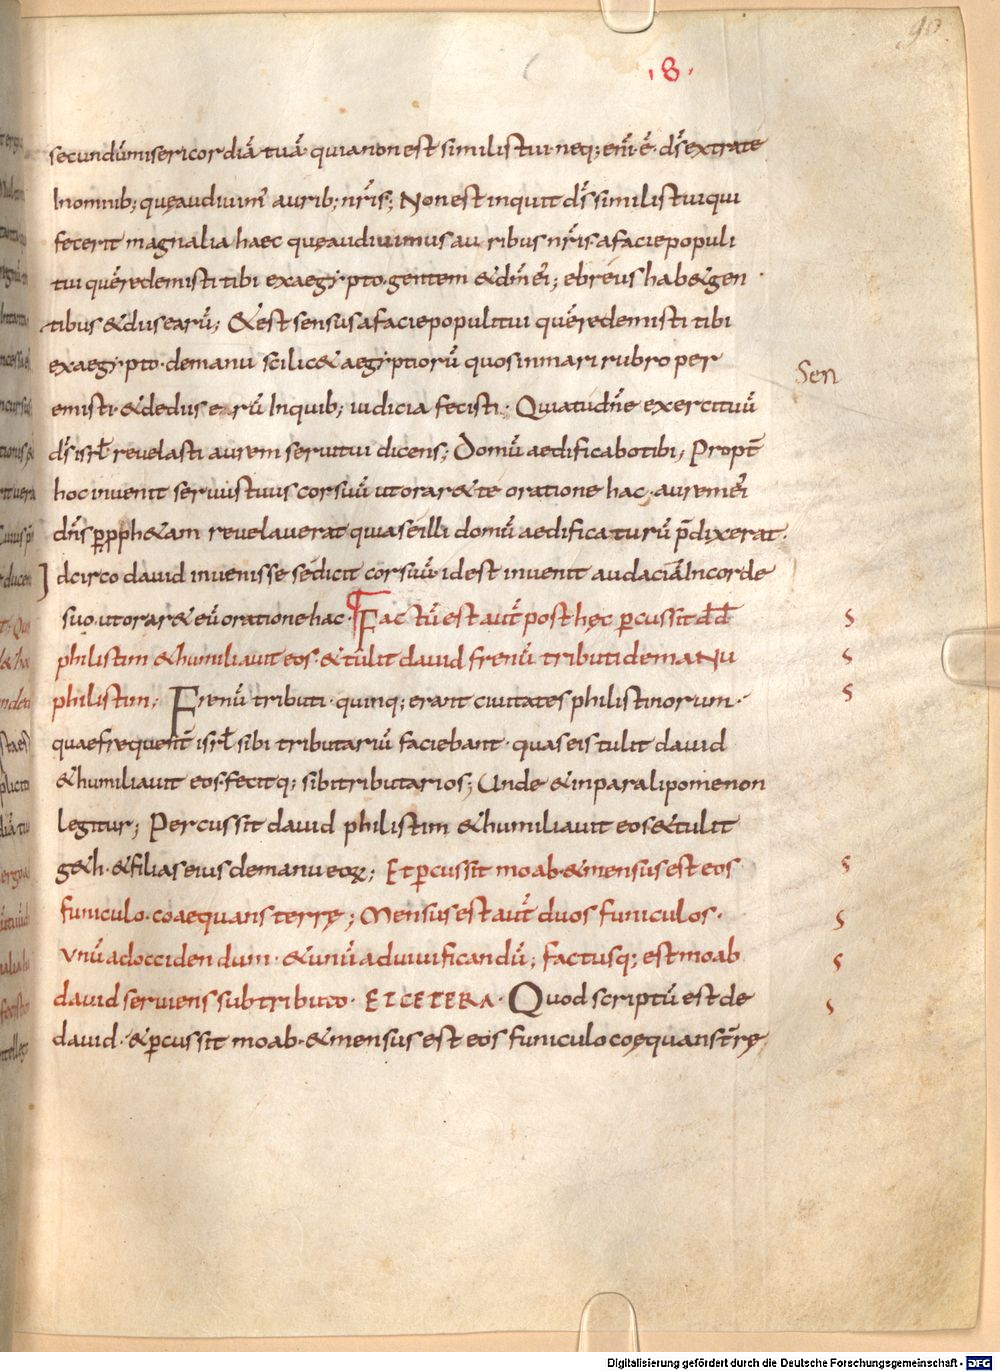 90
.8.
secundū misericordiā tuā quia non est similis tui neq; eni ē ds extra te
In omnib; quę audiuim' aurib; nris; Non est inquit ds similis tui qui
fecerit magnalia haec quę audiuimus auribus nris. a facie populi
tui quē redemisti tibi ex aegypto. gentem & dm ei; ebreus hab& gen
tibus & dus earū; & est sensus a facie populi tui quē redemisti tibi
ex aegypto. de manu scilic& aegyptiorū quos in mari rubro per
Sen
emisti. & de dus earū In quib; iudicia fecisti. Quia tu dne exercituū
ds isrl reuelasti aurem serui tui dicens; Domū aedificabo tibi, Propt
hoc inuenit seruus tuus cor suū ut orar& te oratione hac. aurem ei
dns p pph&am reuelauerat quia se illi domū aedificaturū pdixerat.
Idcirco dauid inuenisse se dicit cor suū. id est inuenit audaciā In corde
suo. ut orar& eū oratione hac. Factū est aut post hęc pcussit dd
philistim & humiliauit eos. & tulit dauid frenū tributi de manu
philistim; Frenū tributi. quinq; erant ciuitates philistinorum.
quae frequent isrl sibi tributariū faciebant. quas eis tulit dauid
& humiliauit eos. fecitq; sibi tributarios; Unde & in paralipomenon
legitur; Percussit dauid philistim & humiliauit eos & tulit
g&h. & filias eius de manu eoꝝ; Et pcussit moab. & mensus est eos
funiculo. coaequans terrę; Mensus est aut duos funiculos.
unū ad occidendum. & unū ad uiuificandū; factusq; est moab
dauid seruiens sub tributo. ET CETERA. Quod scriptū est de
dauid. & pcussit moab. & mensus est eos funiculo coęquans trę
s
s
s
s
s
s
s
Digitalisierung gefördert durch die Deutsche Forschungsgemeinschaft - DFG